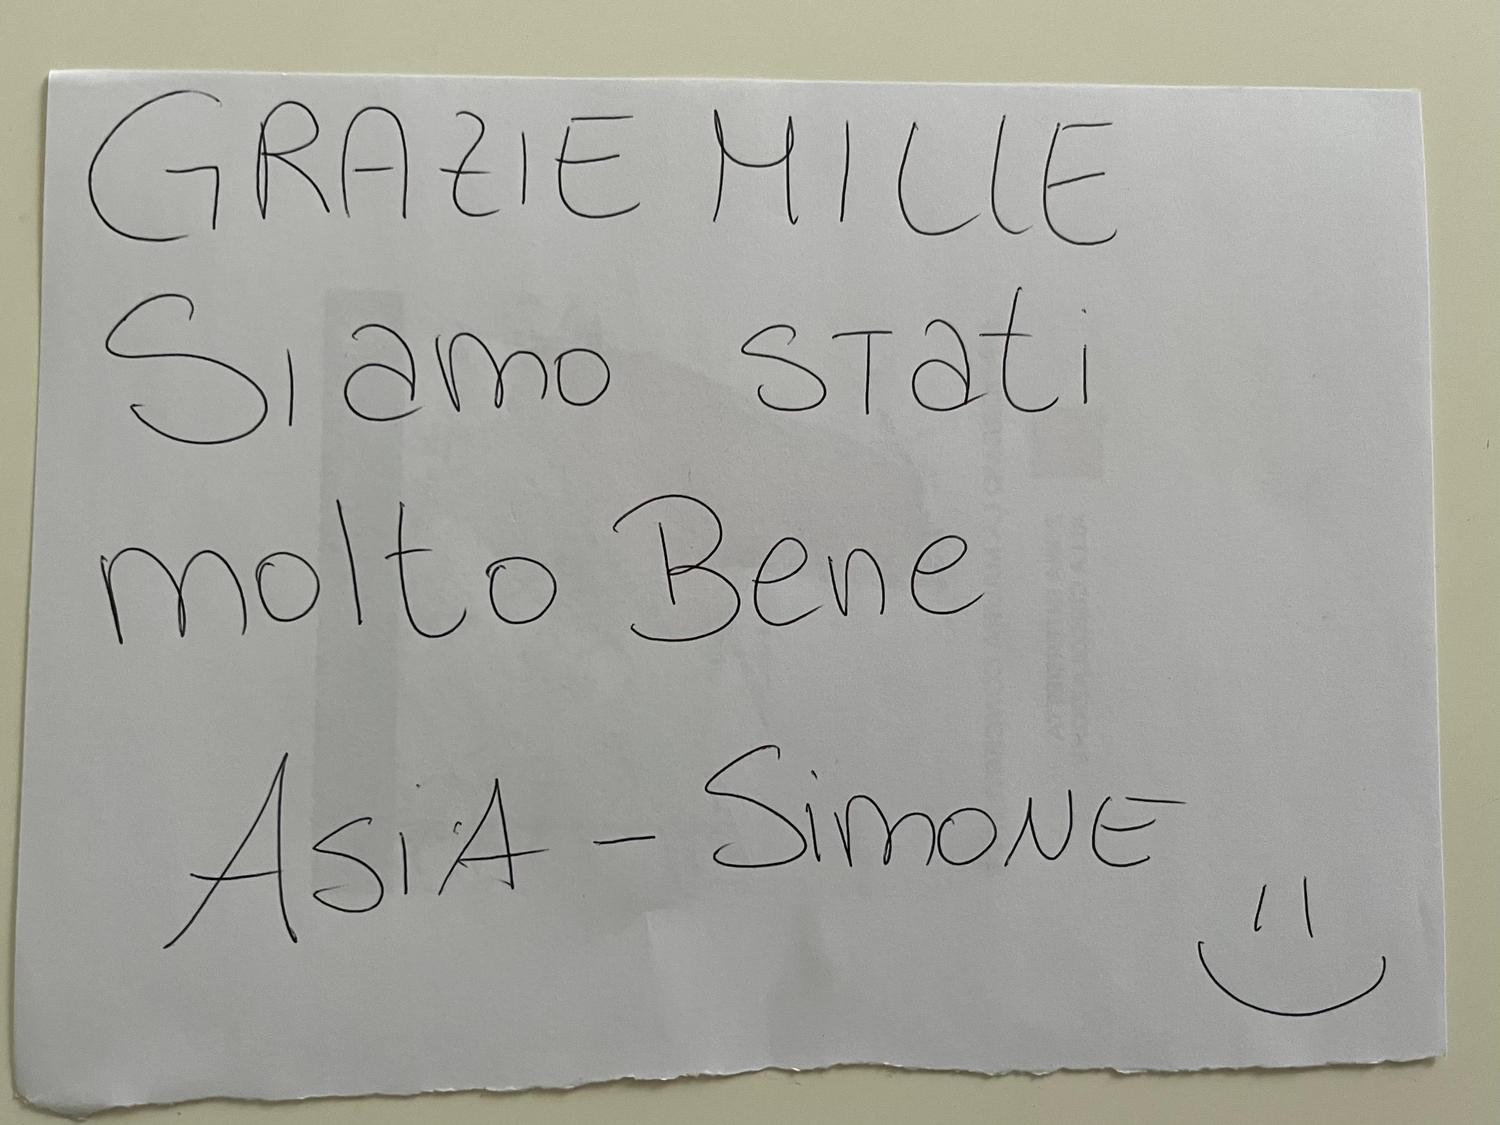 GRAZIE MILLE
Siamo stati
molto Bene
ASiA - SimoNE